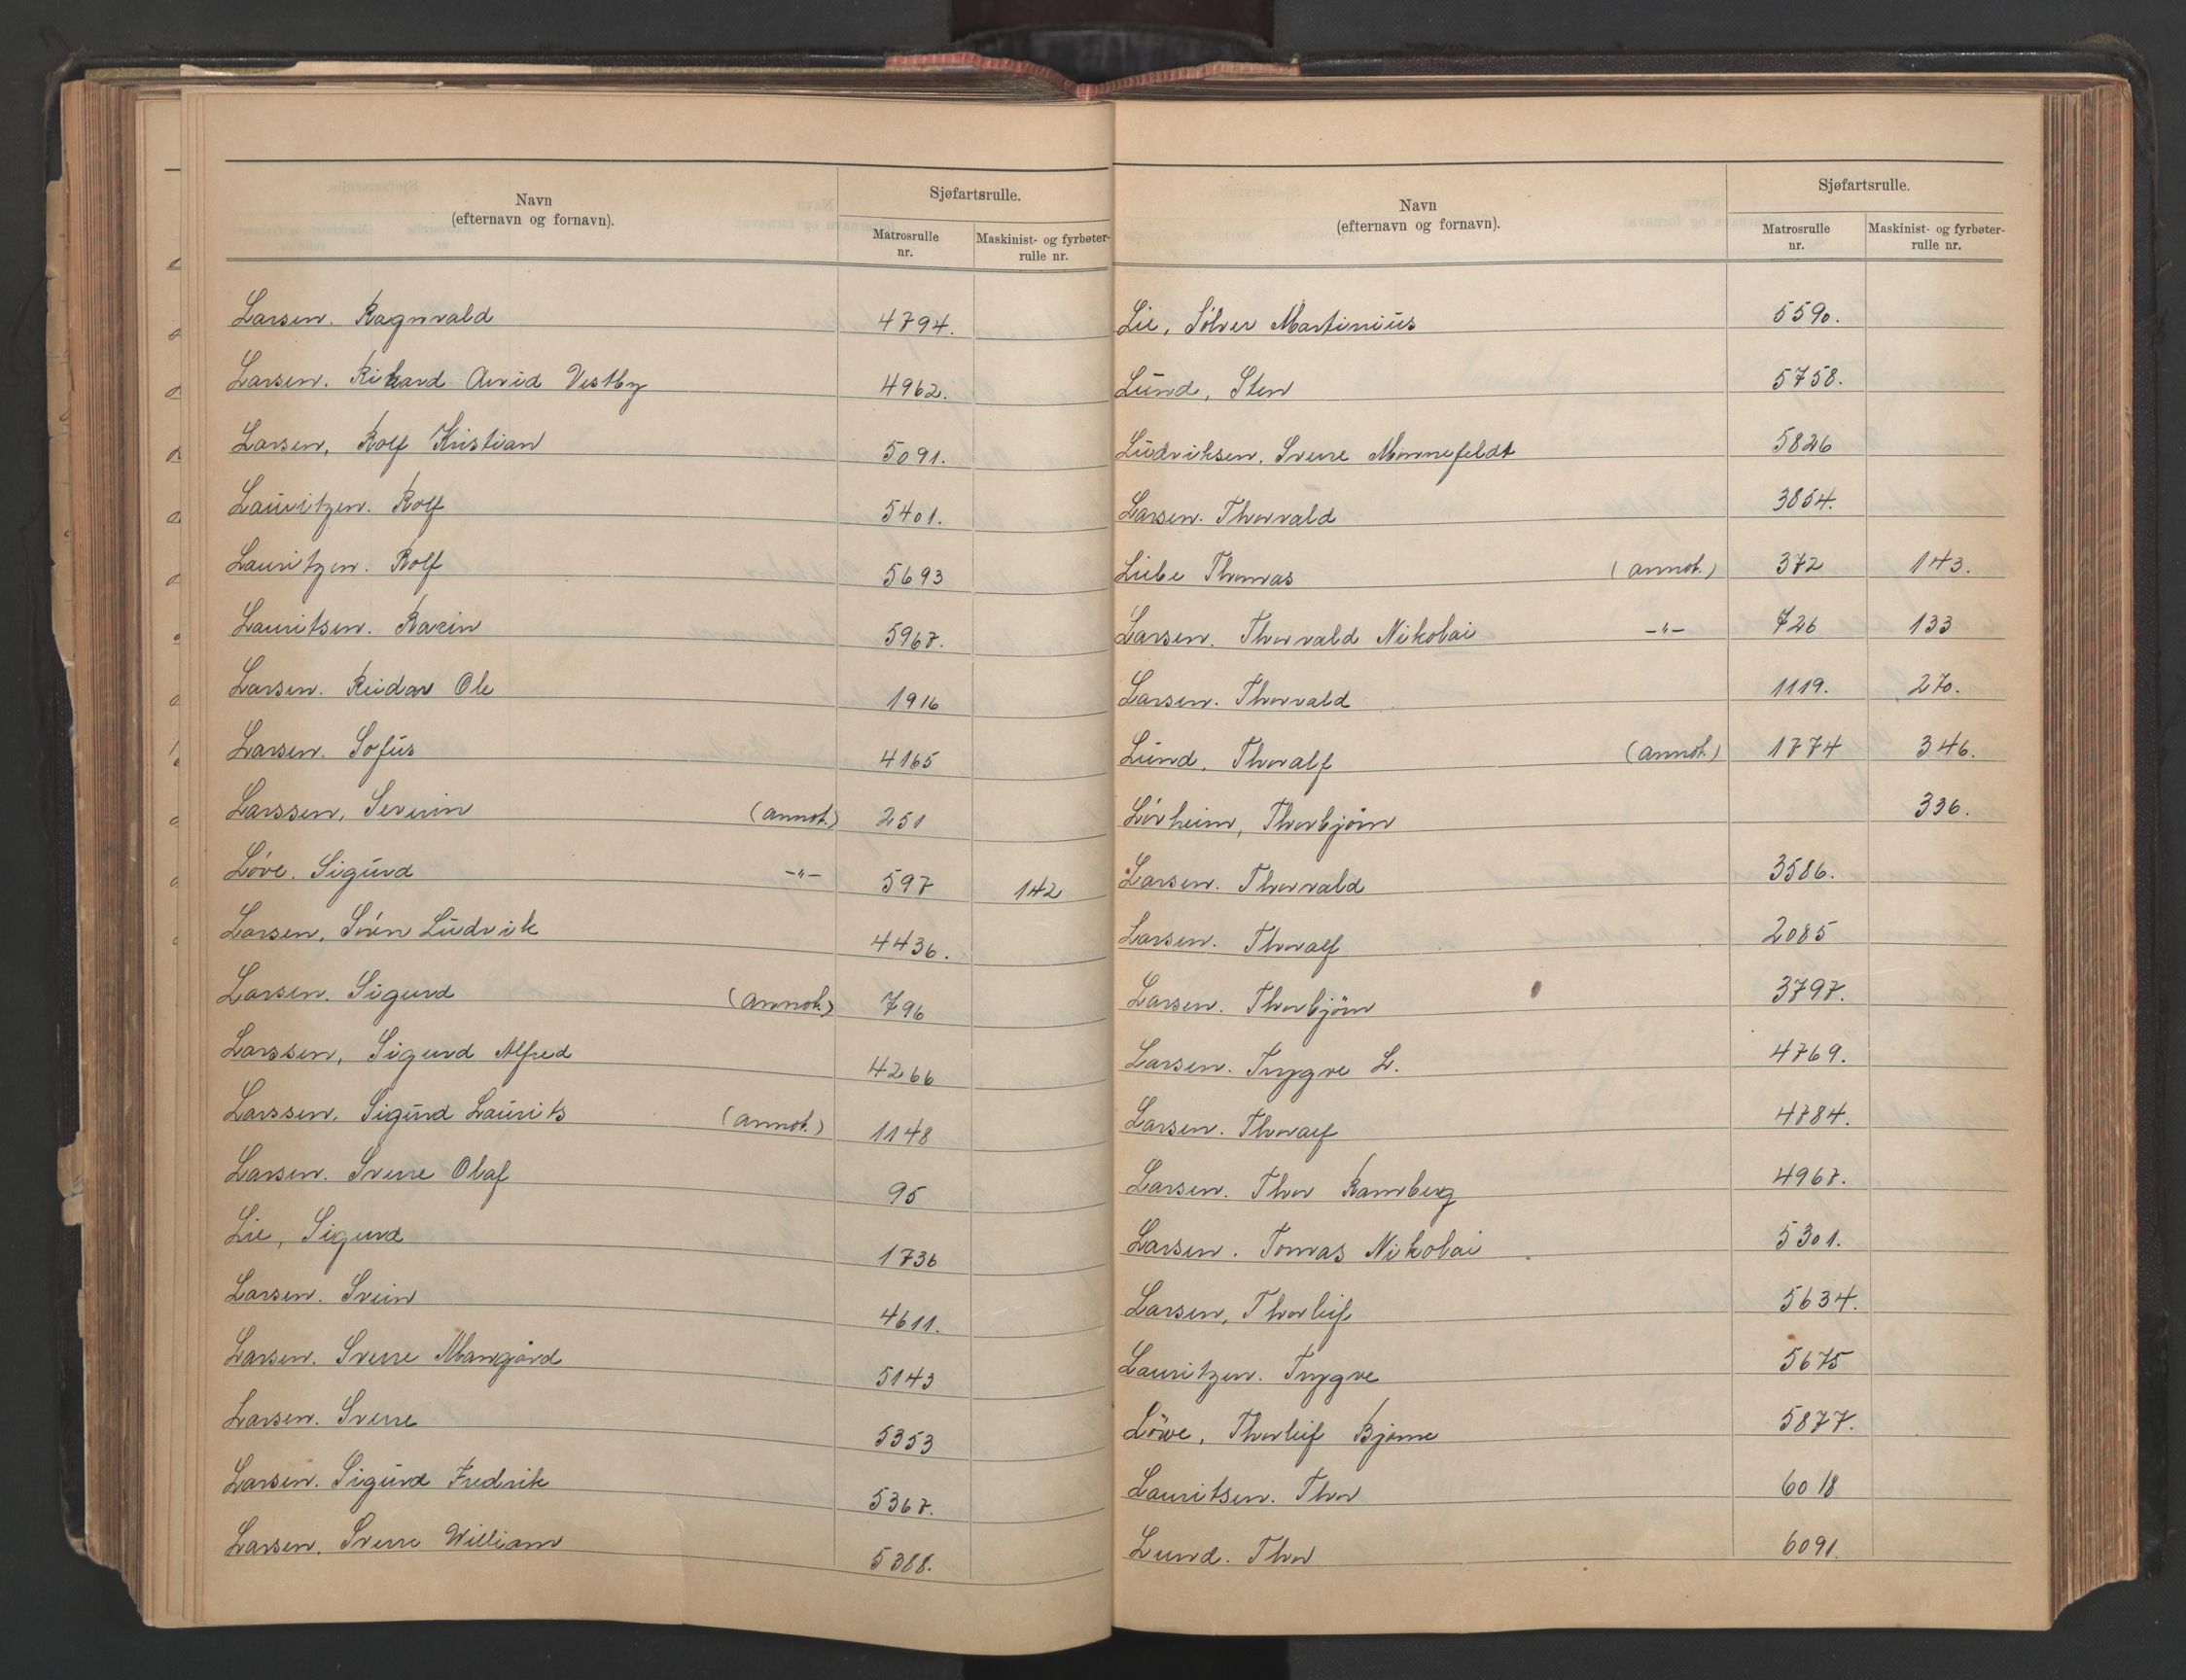 Navn
(efternavn og fornavn).
Sjøfartsrulle.
Matrosrulle
nr.
Maskinist- og fyrbøter-
rulle nr.
Larsen. Ragnvald 4794.
Larsen. Rikard Arvid Vestby 4962.
Larsen, Rolf Kristian 5091.
Lauritzen. Rolf 5401.
Lauritzen. Rolf 5693
Lauritsen. Karin 5967.
Larsen. Reidar Ole 1916
Larsen. Sofus 4165
Larssen, Severin (annot.) 251
Løve. Sigurd -"- 597 142
Larsen, Sören Ludvik 4436.
Larsen. Sigurd (annot.) 796
Larssen, Sigurd Alfred 4266
Larssen, Sigurd Laurits (annot.) 1148
Larsen. Sverre Olaf 95
Lie, Sigurd 1736
Larsen. Svein 4611.
Larsen. Sverre Mangård 5143
Larsen. Sverre 5353
Larsen. Sigurd Fredrik 5367.
Larsen, Sverre William 5388.
Navn
(efternavn og fornavn).
Sjøfartsrulle.
Matrosrulle
nr.
Maskinist- og fyrbøter-
rulle nr.
Lie, Sölver Martinius 5590.
Lund, Sten 5758.
Ludviksen. Sverre Minnefeldt 5826
Larsen. Thorvald 3854.
Liebe Thomas (annot.) 372 143.
Larsen. Thorvald Nikolai -"- 726 133
Larsen. Thorvald 1119. 270.
Lund, Thoralf (annot.) 1774 346.
Lörheim, Thorbjörn 336.
Larsen. Thorvald 3586.
Larsen. Thoralf 2085
Larsen. Thorbjörn 3797.
Larsen. Trygve L. 4769.
Larsen. Thoralf 4784.
Larsen. Thor Ramberg 4967.
Larsen. Tomas Nikolai 5301.
Larsen, Thorleif 5634.
Lauritzen. Trygve 5675
Löwe, Thorleif Bjarne 5877.
Lauritsen. Thor 6018
Lund. Thor 6091.